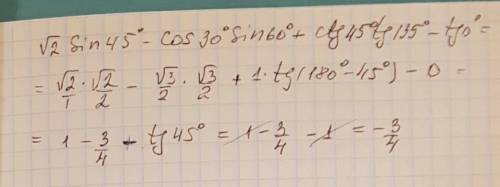 √2 Sin45° - cos30° Sin60° + ctg45° tg135° - tg0° =
= √2/1 · √2/2 - √3/2 · √3/2 + 1 · tg(180° - 45°) - 0 =
= 1 - 3/4 - tg45° = 1 - 3/4 - 1 = -3/4